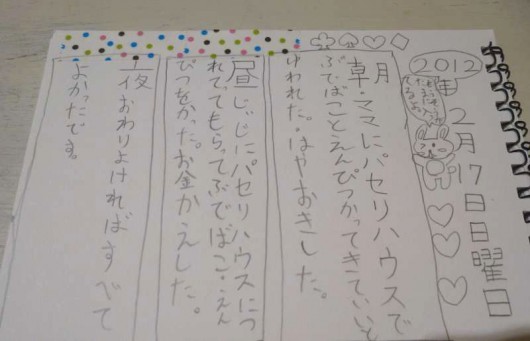 2012年2月17日日曜日
朝・ママにパセリハウスで
ふでばことえんぴつかってきていいと
ゆわれた。はやおきした。
昼じぃじにパセリハウスにつ
れてってもらってふでばこ・えん
ぴつをかった。お金かえした。
夜おわりよければすべて
よかったです。